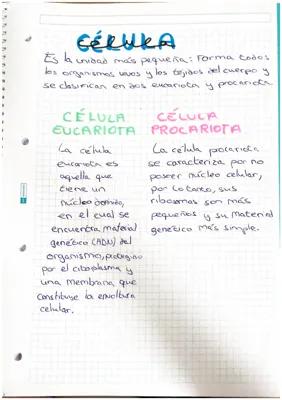 CÉLULA
célula
Es la unidad más pequeña: Forma todos
los organismos vivos y los tejidos del cuerpo y
se clasifican en dos eucariota y procariota.
CÉLULA
EUCARIOTA
La célula
eucariota es
aquella que
tiene un
núcleo definido,
en el cual se
encuentra material
genético (ADN) del
organismo, protegino
por el citoplasma y
una membrana, que
constituye la envoltura
celular.
CÉLULA
PROCARIOTA
La célula procariota
se caracteriza por no
poseer núcleo celular,
por lo tanto, sus
ribosomas son más
pequeños y su material
genético más simple.